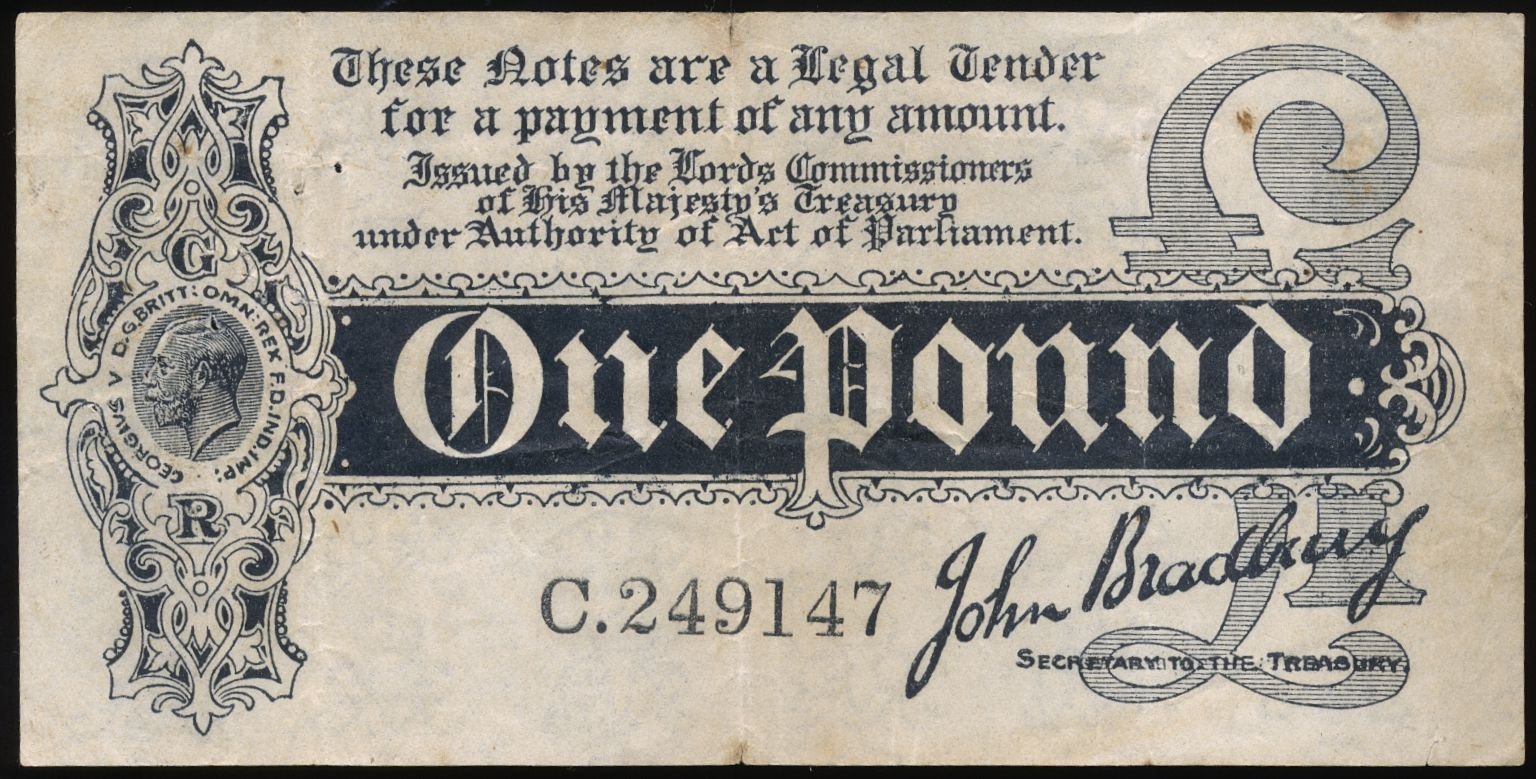 These Notes are a Legal Tender
for a payment of any amount.
Issued by the Lords Commissioners
of His Majesty's Treasury
under Authority of Act of Parliament.
G
GEORGIVS V D.G.BRITT: OMN: REX F.D.IND.IMP:
R
One Pound
£1
C.249147
John Bradbury
SECRETARY TO THE TREASURY.